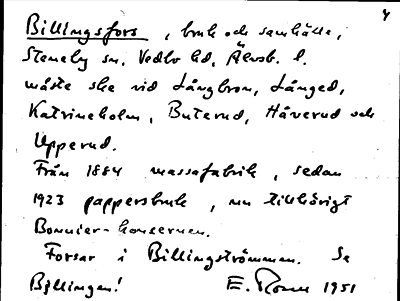 4
Billingsfors, bruk och samhälle,
Steneby sn, Vedbo hd, Älvsb. l.
måste ske vid Långbron, Långed,
Katrineholm, Buterud, Håverud och
Upperud.
Från 1884 massafabrik, sedan
1923 pappersbruk, nu tillhörigt
Bonnier-koncernen.
Forsar i Billingströmmen. Se
Billingen! E. 1951